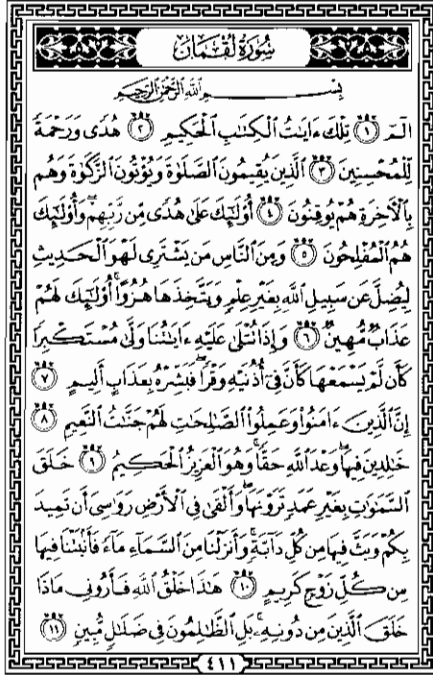 سُورَةُ لُقْمَانَ
بِسْمِ اللَّهِ الرَّحْمَٰنِ الرَّحِيمِ
الٓمٓ ١ تِلْكَ ءَايَٰتُ ٱلْكِتَٰبِ ٱلْحَكِيمِ ٢ هُدًى وَرَحْمَةً
لِّلْمُحْسِنِينَ ٣ ٱلَّذِينَ يُقِيمُونَ ٱلصَّلَوٰةَ وَيُؤْتُونَ ٱلزَّكَوٰةَ وَهُم
بِٱلْأَخِرَةِ هُمْ يُوقِنُونَ ٤ أُو۟لَٰٓئِكَ عَلَىٰ هُدًى مِّن رَّبِّهِمْ وَأُو۟لَٰٓئِكَ
هُمُ ٱلْمُفْلِحُونَ ٥ وَمِنَ ٱلنَّاسِ مَن يَشْتَرِى لَهْوَ ٱلْحَدِيثِ
لِيُضِلَّ عَن سَبِيلِ ٱللَّهِ بِغَيْرِ عِلْمٍ وَيَتَّخِذَهَا هُزُوًا أُو۟لَٰٓئِكَ لَهُمْ
عَذَابٌ مُّهِينٌ ٦ وَإِذَا تُتْلَىٰ عَلَيْهِ ءَايَٰتُنَا وَلَّىٰ مُسْتَكْبِرًا
كَأَن لَّمْ يَسْمَعْهَا كَأَنَّ فِىٓ أُذُنَيْهِ وَقْرًا فَبَشِّرْهُ بِعَذَابٍ أَلِيمٍ ٧
إِنَّ ٱلَّذِينَ ءَامَنُوا۟ وَعَمِلُوا۟ ٱلصَّٰلِحَٰتِ لَهُمْ جَنَّٰتُ ٱلنَّعِيمِ ٨
خَٰلِدِينَ فِيهَا وَعْدَ ٱللَّهِ حَقًّا وَهُوَ ٱلْعَزِيزُ ٱلْحَكِيمُ ٩ خَلَقَ
ٱلسَّمَٰوَٰتِ بِغَيْرِ عَمَدٍ تَرَوْنَهَا وَأَلْقَىٰ فِى ٱلْأَرْضِ رَوَٰسِىَ أَن تَمِيدَ
بِكُمْ وَبَثَّ فِيهَا مِن كُلِّ دَآبَّةٍ وَأَنزَلْنَا مِنَ ٱلسَّمَآءِ مَآءً فَأَنۢبَتْنَا فِيهَا
مِن كُلِّ زَوْجٍ كَرِيمٍ ١٠ هَٰذَا خَلْقُ ٱللَّهِ فَأَرُونِى مَاذَا
خَلَقَ ٱلَّذِينَ مِن دُونِهِۦ بَلِ ٱلظَّٰلِمُونَ فِى ضَلَٰلٍ مُّبِينٍ ١١
٤١١